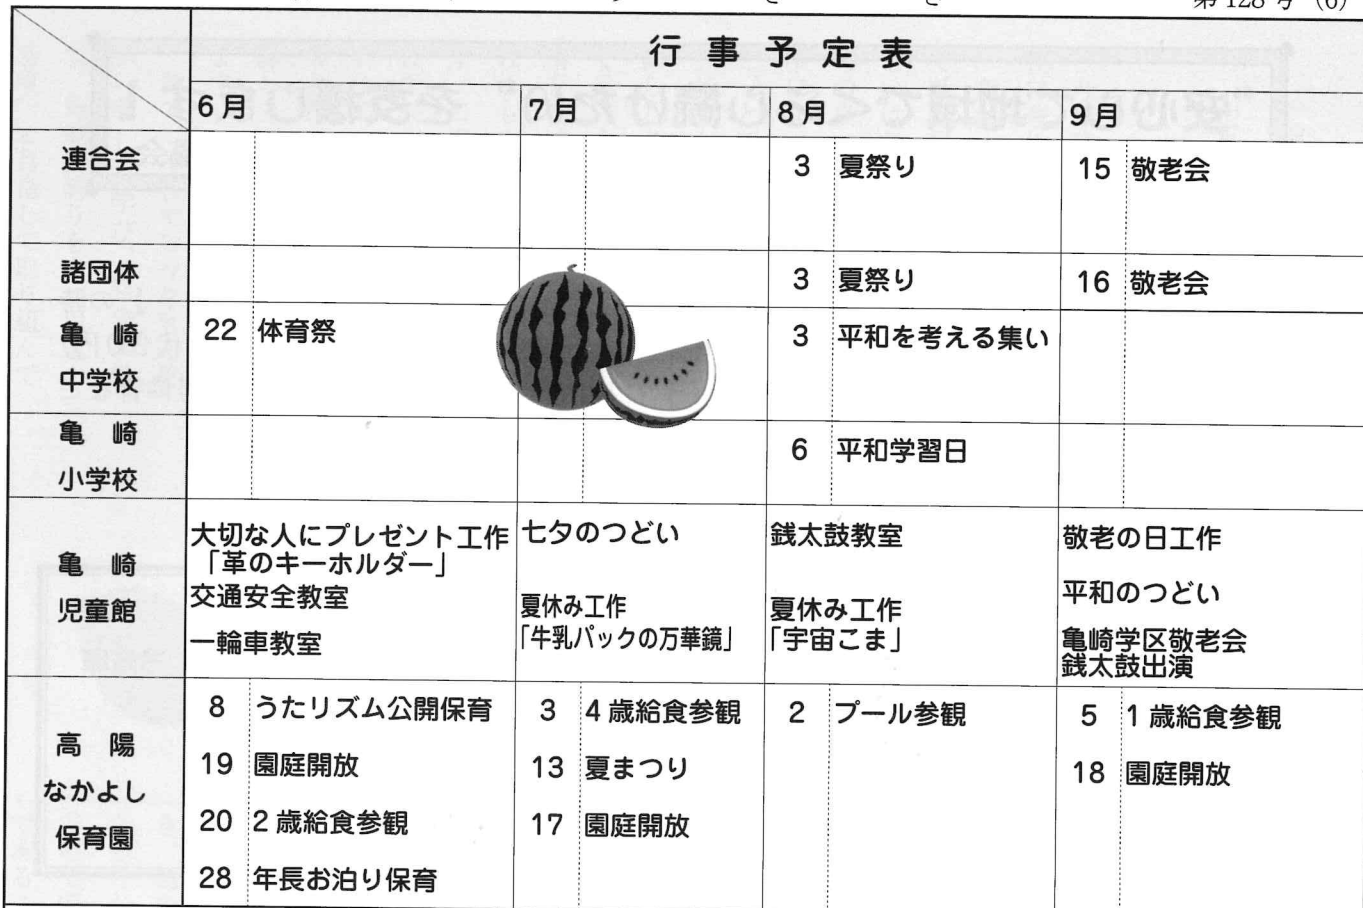 第128号 (6)
行事予定表
6月 7月 8月 9月
連合会 3 夏祭り 15 敬老会
諸団体 3 夏祭り 16 敬老会
亀崎中学校 22 体育祭 3 平和を考える集い
亀崎小学校 6 平和学習日
亀崎児童館
大切な人にプレゼント工作
「革のキーホルダー」
交通安全教室
一輪車教室
七夕のつどい
夏休み工作
「牛乳パックの万華鏡」
銭太鼓教室
夏休み工作
「宇宙こま」
敬老の日工作
平和のつどい
亀崎学区敬老会
銭太鼓出演
高陽なかよし保育園
8 うたリズム公開保育
19 園庭開放
20 2歳給食参観
28 年長お泊り保育
3 4歳給食参観
13 夏まつり
17 園庭開放
2 プール参観
5 1歳給食参観
18 園庭開放